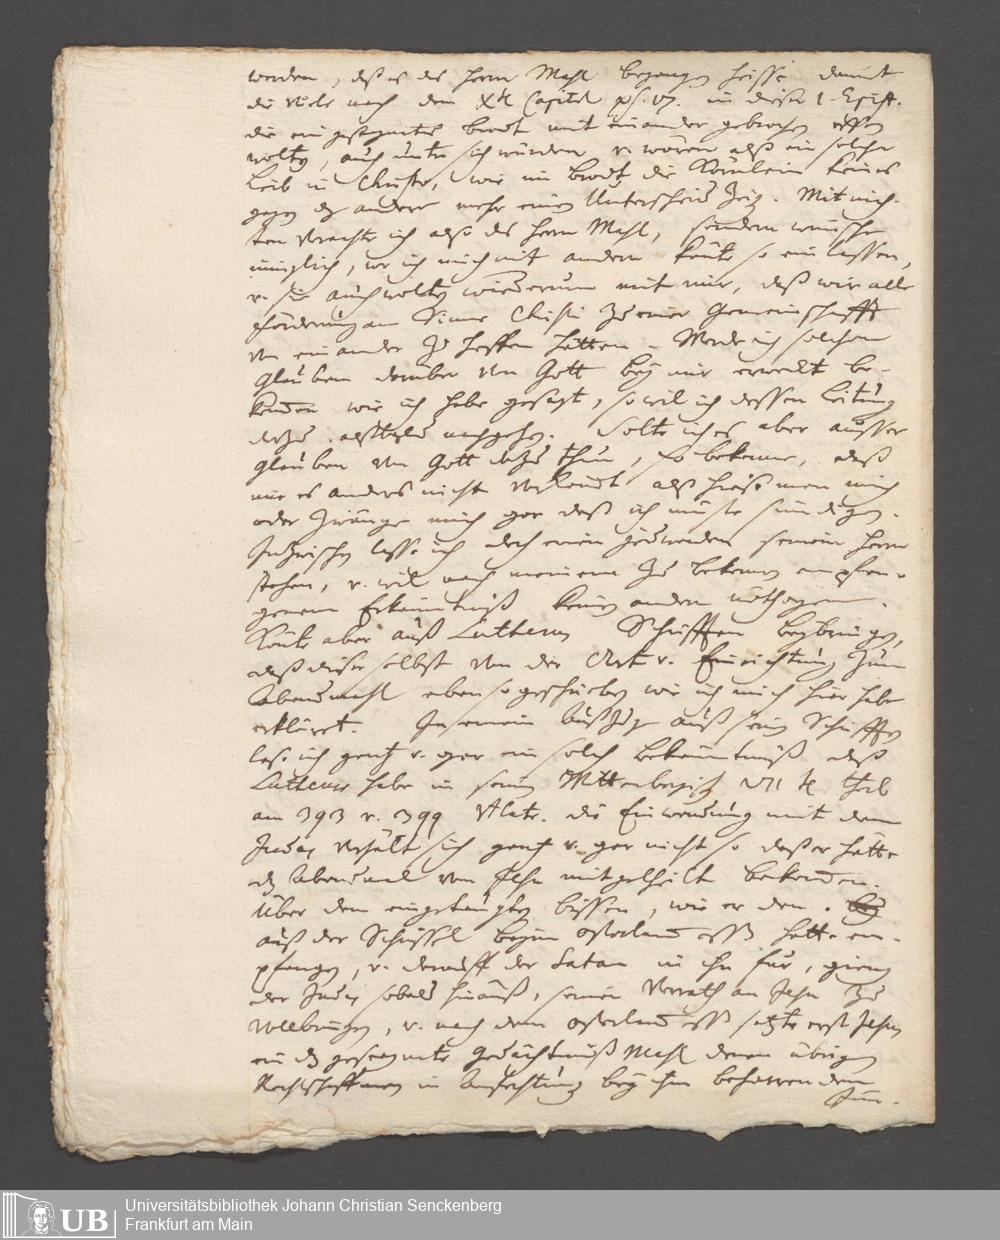 werden, daß es des Herrn Mahl begangen heisse damit
die Viele nach dem X Capitel v. 17. in dieser 1. Epist.
die ein gesegnetes brodt mit einander gebrochen essen
wolten, auch unter sich würden v. wären alß ein solcher
Leib in Christo, wie im brodt die Körnlein keines
gegen dz andere mehr einen Unterscheid Zeig. Mit nich-
ten verachte ich also des Herrn Mahl, sondern wünsche
müglich, wo ich mich mit andern könte so ein lassen,
v. sie auch wolten wiederum mit mir, daß wir alle
förderung am Sinne Christi Zu einer Gemeinschafft
von ein ander Zu hoffen hätten. Werde ich solchem
Glauben darüber von Gott bey mir erweckt be-
finden wie ich habe gesagt, so wil ich dessen Leitung
dazu alsbald nachgehen. Solte ich es aber ausser
Glauben von Gott dazu thun, so bekenne, daß
mir es anders nicht alß hieße man mich
oder Zwänge mich gar daß ich müste sündigen.
Inzwischen lasse ich doch einen jedweden seinem Herrn
stehen, v. wil nach meinem Zu bekennen empfan-
genem Erkäntniß keinen andern
Könte aber auß Lutheri Schrifften beybringen,
daß dieser selbst von der Art v. Einrichtung Zum
Abendmahl eben so geschrieben wie ich mich hier habe
erkläret. In einem Außzuge auß sein Schrifften
lase ich gantz v. gar ein solch bekäntniß daß
Lutherus habe in seinem Wittenbergisch VII theil
am 393 v. 399 Blate. die Einwendung mit dem
Judas verhält sich gantz v. gar nicht so daß er hätte
dz Abendmal von Jesu mitgetheilt bekommen.
Über dem eingetungten bissen, wie er den
auß der Schüssel beym osterlamb essen hatte em-
pfangen, v. darauff der Satan in ihn fur, gieng
der Judas sobald hinauß, seinen Verrath an Jesu Zu
vollbringen, v. nach dem osterlamb essen setzte erst Jesus
ein dz gesegnete Gedächtniß Mahl denen übrigen
Rechtschaffenen in Anfechtung bey ihm beharrenden
Jün.
Universitätsbibliothek Johann Christian Senckenberg
Frankfurt am Main
UB